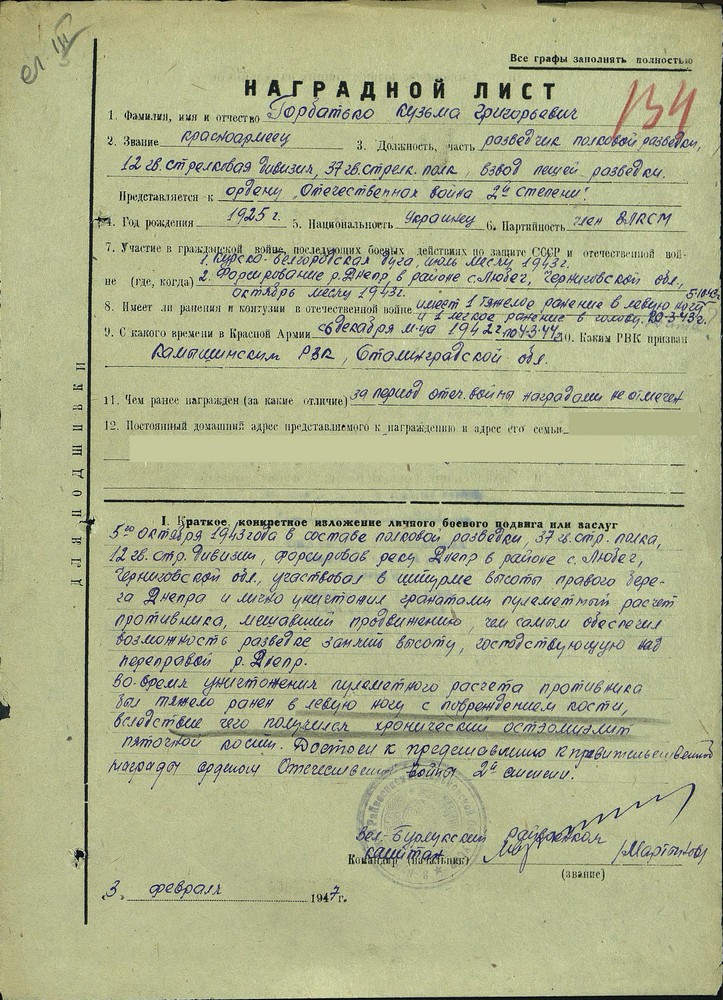 ел. III
Все графы заполнять полностью
НАГРАДНОЙ ЛИСТ
134
1. Фамилия, имя и отчество Горбатько Кузьма Григорьевич
2. Звание красноармеец 3. Должность, часть разведчик полковой разведки,
12 гв. стрелковая дивизия, 37 гв. стрелк. полк, взвод пешей разведки.
Представляется к ордену „Отечественная война 2й степени".
4. Год рождения 1925 г. 5. Национальность Украинец 6. Партийность член ВЛКСМ
7. Участие в гражданской войне, последующих боевых действиях по защите СССР и отечественной вой-
1. Курско-Белгородская дуга, июль месяц 1943 г.
не (где, когда) 2. Форсирование р. Днепр, в районе с. Любеч, Черниговской обл.,
октябрь месяц 1943 г.
8. Имеет ли ранения и контузии в отечественной войне имеет 1 тяжелое ранение в левую ногу 5-10-43г.
и 1 легкое ранение в голову.
9. С какого времени в Красной Армии с декабря м-ца 1942 г. по 4-3-44г. 10. Каким РВК призван
Камышинским РВК, Сталинградской обл.
11. Чем ранее награжден (за какие отличие) за период отеч. войны наградами не отмечен
12. Постоянный домашний адрес представляемого к награждению и адрес его семьи
ДЛЯ ПОДШИВКИ
I. Краткое, конкретное изложение личного боевого подвига или заслуг
5го октября 1943 года в составе полковой разведки, 37 гв. стр. полка,
12 гв. стр. дивизии, форсировав реку Днепр в районе с. Любеч,
Черниговской обл., участвовал в штурме высоты правого бере-
га Днепра и лично уничтожил гранатами пулеметный расчет
противника, мешавший продвижению, чем самым обеспечил
возможность разведке занять высоту, господствующую над
переправой р. Днепр.
Во-время уничтожения пулеметного расчета противника
был тяжело ранен в левую ногу с повреждением кости,
вследствие чего получился хронический остэомиэлит
пяточной кости. Достоен к представлению к правительственной
награды орденом Отечественной войны 2й степени.
Вел.-Бурлукский райвоенком
капитан
Командир (начальник) /Мартынов/
(звание)
„3„ февраля 1947 г.